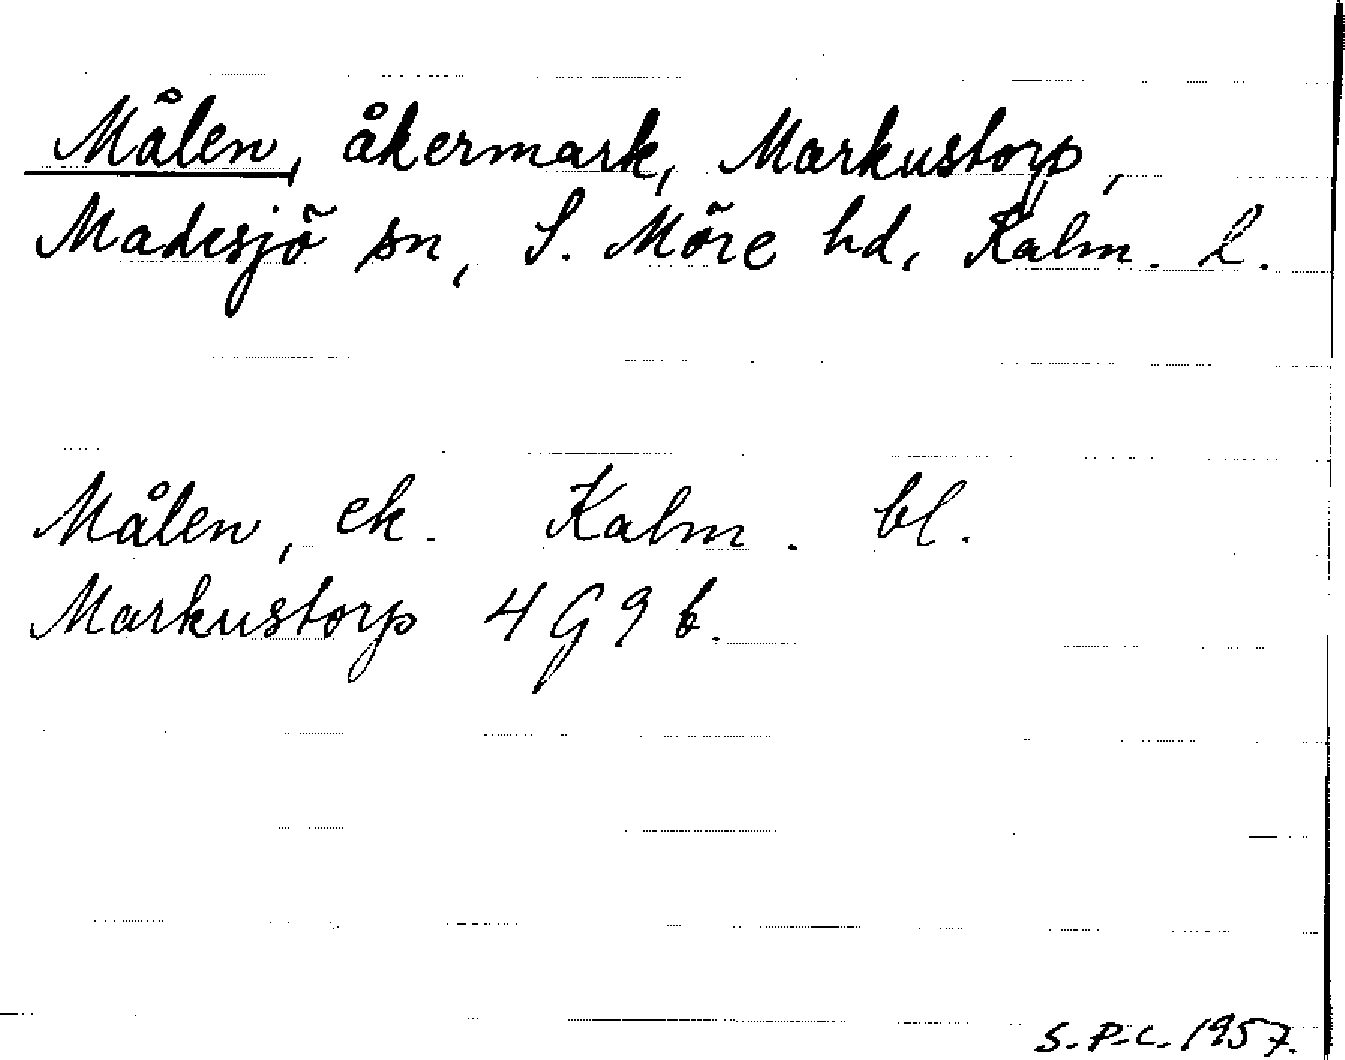 Målen, åkermark, Markustorp,
Madesjö sn, S. Möre hd, Kalm. l.
Målen, ek. Kalm. bl.
Markustorp 4G9b.
S.P.C. 1957.